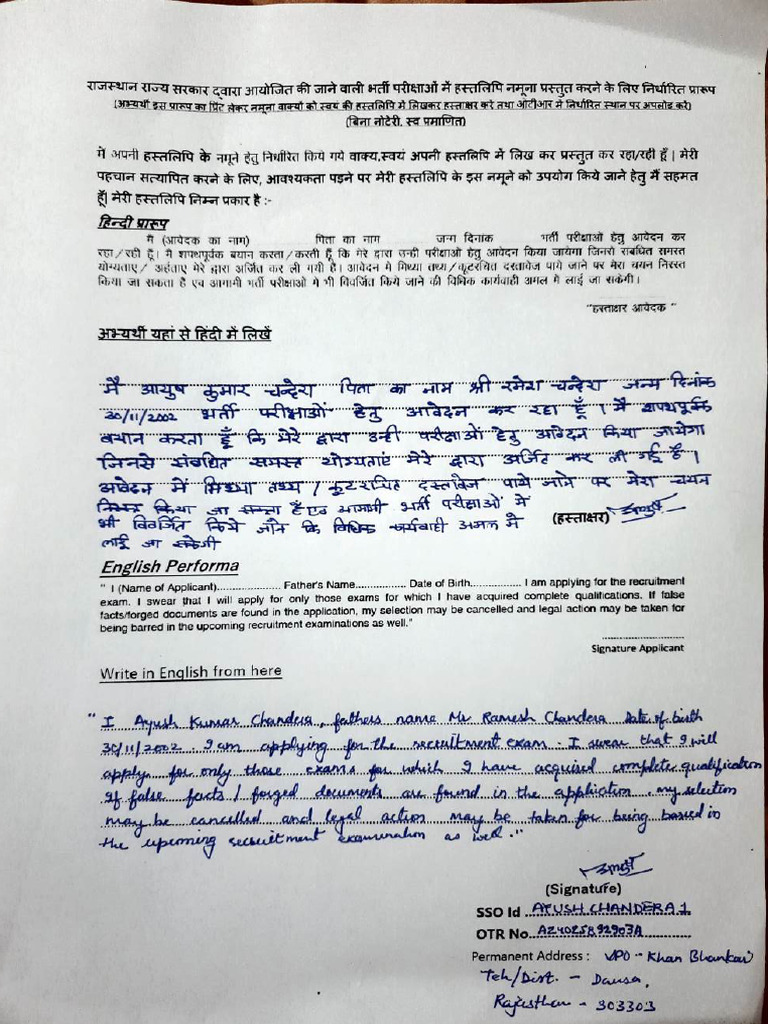 राजस्थान राज्य सरकार द्वारा आयोजित की जाने वाली भर्ती परीक्षाओं में हस्तलिपि नमूना प्रस्तुत करने के लिए निर्धारित प्रारूप
(अभ्यर्थी इस प्रारूप का प्रिंट लेकर नमूना वाक्यों को स्वयं की हस्तलिपि में लिखकर हस्ताक्षर करे तथा ओटीआर में निर्धारित स्थान पर अपलोड करे)
(बिना नोटेरी, स्व प्रमाणित)
में अपनी हस्तलिपि के नमूने हेतु निर्धारित किये गये वाक्य,स्वयं अपनी हस्तलिपि में लिख कर प्रस्तुत कर रहा/रही हूँ | मेरी
पहचान सत्यापित करने के लिए, आवश्यकता पड़ने पर मेरी हस्तलिपि के इस नमूने को उपयोग किये जाने हेतु मैं सहमत
हूँ| मेरी हस्तलिपि निम्न प्रकार है :-
हिन्दी प्रारूप
मै (आवेदक का नाम) पिता का नाम जन्म दिनांक भर्ती परीक्षाओं हेतु आवेदन कर
रहा/रही हूँ। मै शपथपूर्वक बयान करता/करती हूँ कि मेरे द्वारा उन्ही परीक्षाओं हेतु आवेदन किया जायेगा जिनसे संबंधित समस्त
योग्यताए/ अर्हताए मेरे द्वारा अर्जित कर ली गयी है। आवेदन में मिथ्या तथ्य/कूटरचित दस्तावेज पाये जाने पर मेरा चयन निरस्त
किया जा सकता है एव आगामी भर्ती परीक्षाओ मे भी विवर्जित किये जाने की विधिक कार्यवाही अमल मे लाई जा सकेगी।
"हस्ताक्षर आवेदक "
अभ्यर्थी यहां से हिंदी में लिखें
मै आयुष कुमार चन्देरा पिता का नाम श्री रमेश चन्देरा जन्म दिनांक
30/11/2002 भर्ती परीक्षाओं हेतु आवेदन कर रहा हूँ । मै शपथपूर्वक
बयान करता हूँ कि मेरे द्वारा उन्ही परीक्षाओं हेतु आवेदन किया जायेगा
जिनसे संबधित समस्त योग्यताएं मेरे द्वारा अर्जित कर ली गई है ।
आवेदन में मिथ्या तथ्य / कूटरचित दस्तावेज पाये जाने पर मेरा चयन
निरस्त किया जा सकता है एव आगामी भर्ती परीक्षाओ में
भी विवर्जित किये जाने कि विधिक कार्यवाही अमल मे (हस्ताक्षर)
लाई जा सकेगी
English Performa
" I (Name of Applicant)................. Father's Name.............. Date of Birth.............. I am applying for the recruitment
exam. I swear that I will apply for only those exams for which I have acquired complete qualifications. If false
facts/forged documents are found in the application, my selection may be cancelled and legal action may be taken for
being barred in the upcoming recruitment examinations as well."
Signature Applicant
Write in English from here
" I Ayush Kumar Chandera, fathers name Mr Ramesh Chandera Date of birth
30/11/2002. I am applying for the recruitment exam. I swear that I will
apply for only those exams for which I have acquired complete qualification
If false facts / forged documents are found in the application, my selection
may be cancelled and legal action may be taken for being barred in
the upcoming recruitment examination as well."
(Signature)
SSO Id AYUSHCHANDERA1
OTR No. AZ4025892903A
Permanent Address : VPO - Khan Bhankari
Teh/Dist. - Dausa,
Rajasthan - 303303